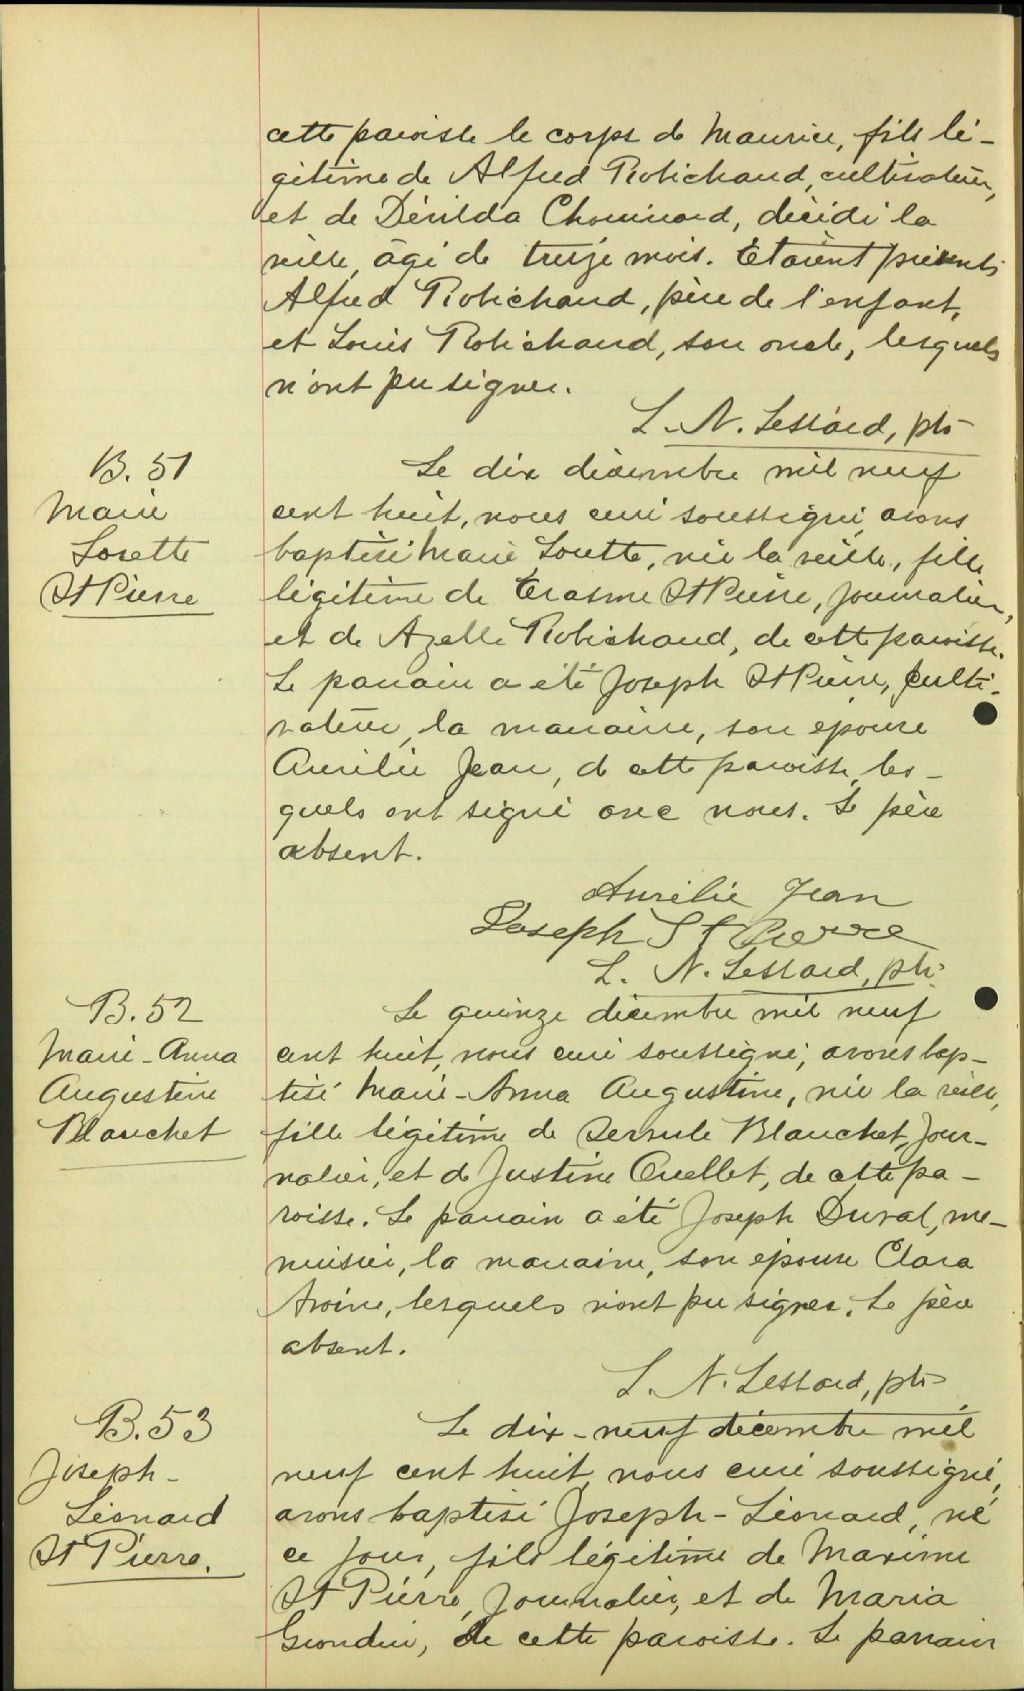 cette paroisse le corps de Maurice, fils lé-
gitime de Alfred Robichaud, cultivateur,
et de Dérilda Chouinard, décédé la
veille, âgé de treize mois. Etaient présents
Alfred Robichaud, père de l'enfant,
et Louis Robichaud, son oncle, lesquels
n'ont pu signer.
L. N. Lessard, ptr
B. 51
Marie
Lorette
St Pierre
Le dix décembre mil neuf
cent huit, nous curé soussigné, avons
baptisé Marie Lorette, née la veille, fille
légitime de Erasme St Pierre, journalier,
et de Azelle Robichaud, de cette paroisse.
Le parrain a été Joseph St Pierre, culti-
vateur, la marraine, son épouse
Aurélie Jean, de cette paroisse, les-
quels ont signé avec nous. Le père
absent.
Aurélie Jean
Joseph St Pierre
L. N. Lessard, ptr.
B. 52
Marie-Anna
Augustine
Blanchet
Le quinze décembre mil neuf
cent huit, nous curé soussigné, avons bap-
tisé Marie-Anna Augustine, née la veille,
fille légitime de Servule Blanchet, jour-
nalier, et de Justine Ouellet, de cette pa-
roisse. Le parrain a été Joseph Duval, me-
nuisier, la marraine, son épouse Clara
Avoine, lesquels n'ont pu signer. Le père
absent.
L. N. Lessard, ptr
B. 53
Joseph-
Léonard
St Pierre.
Le dix-neuf décembre mil
neuf cent huit, nous curé soussigné,
avons baptisé Joseph-Léonard, né
ce jour, fils légitime de Maxime
St Pierre, journalier, et de Maria
Grondin, de cette paroisse. Le parrain